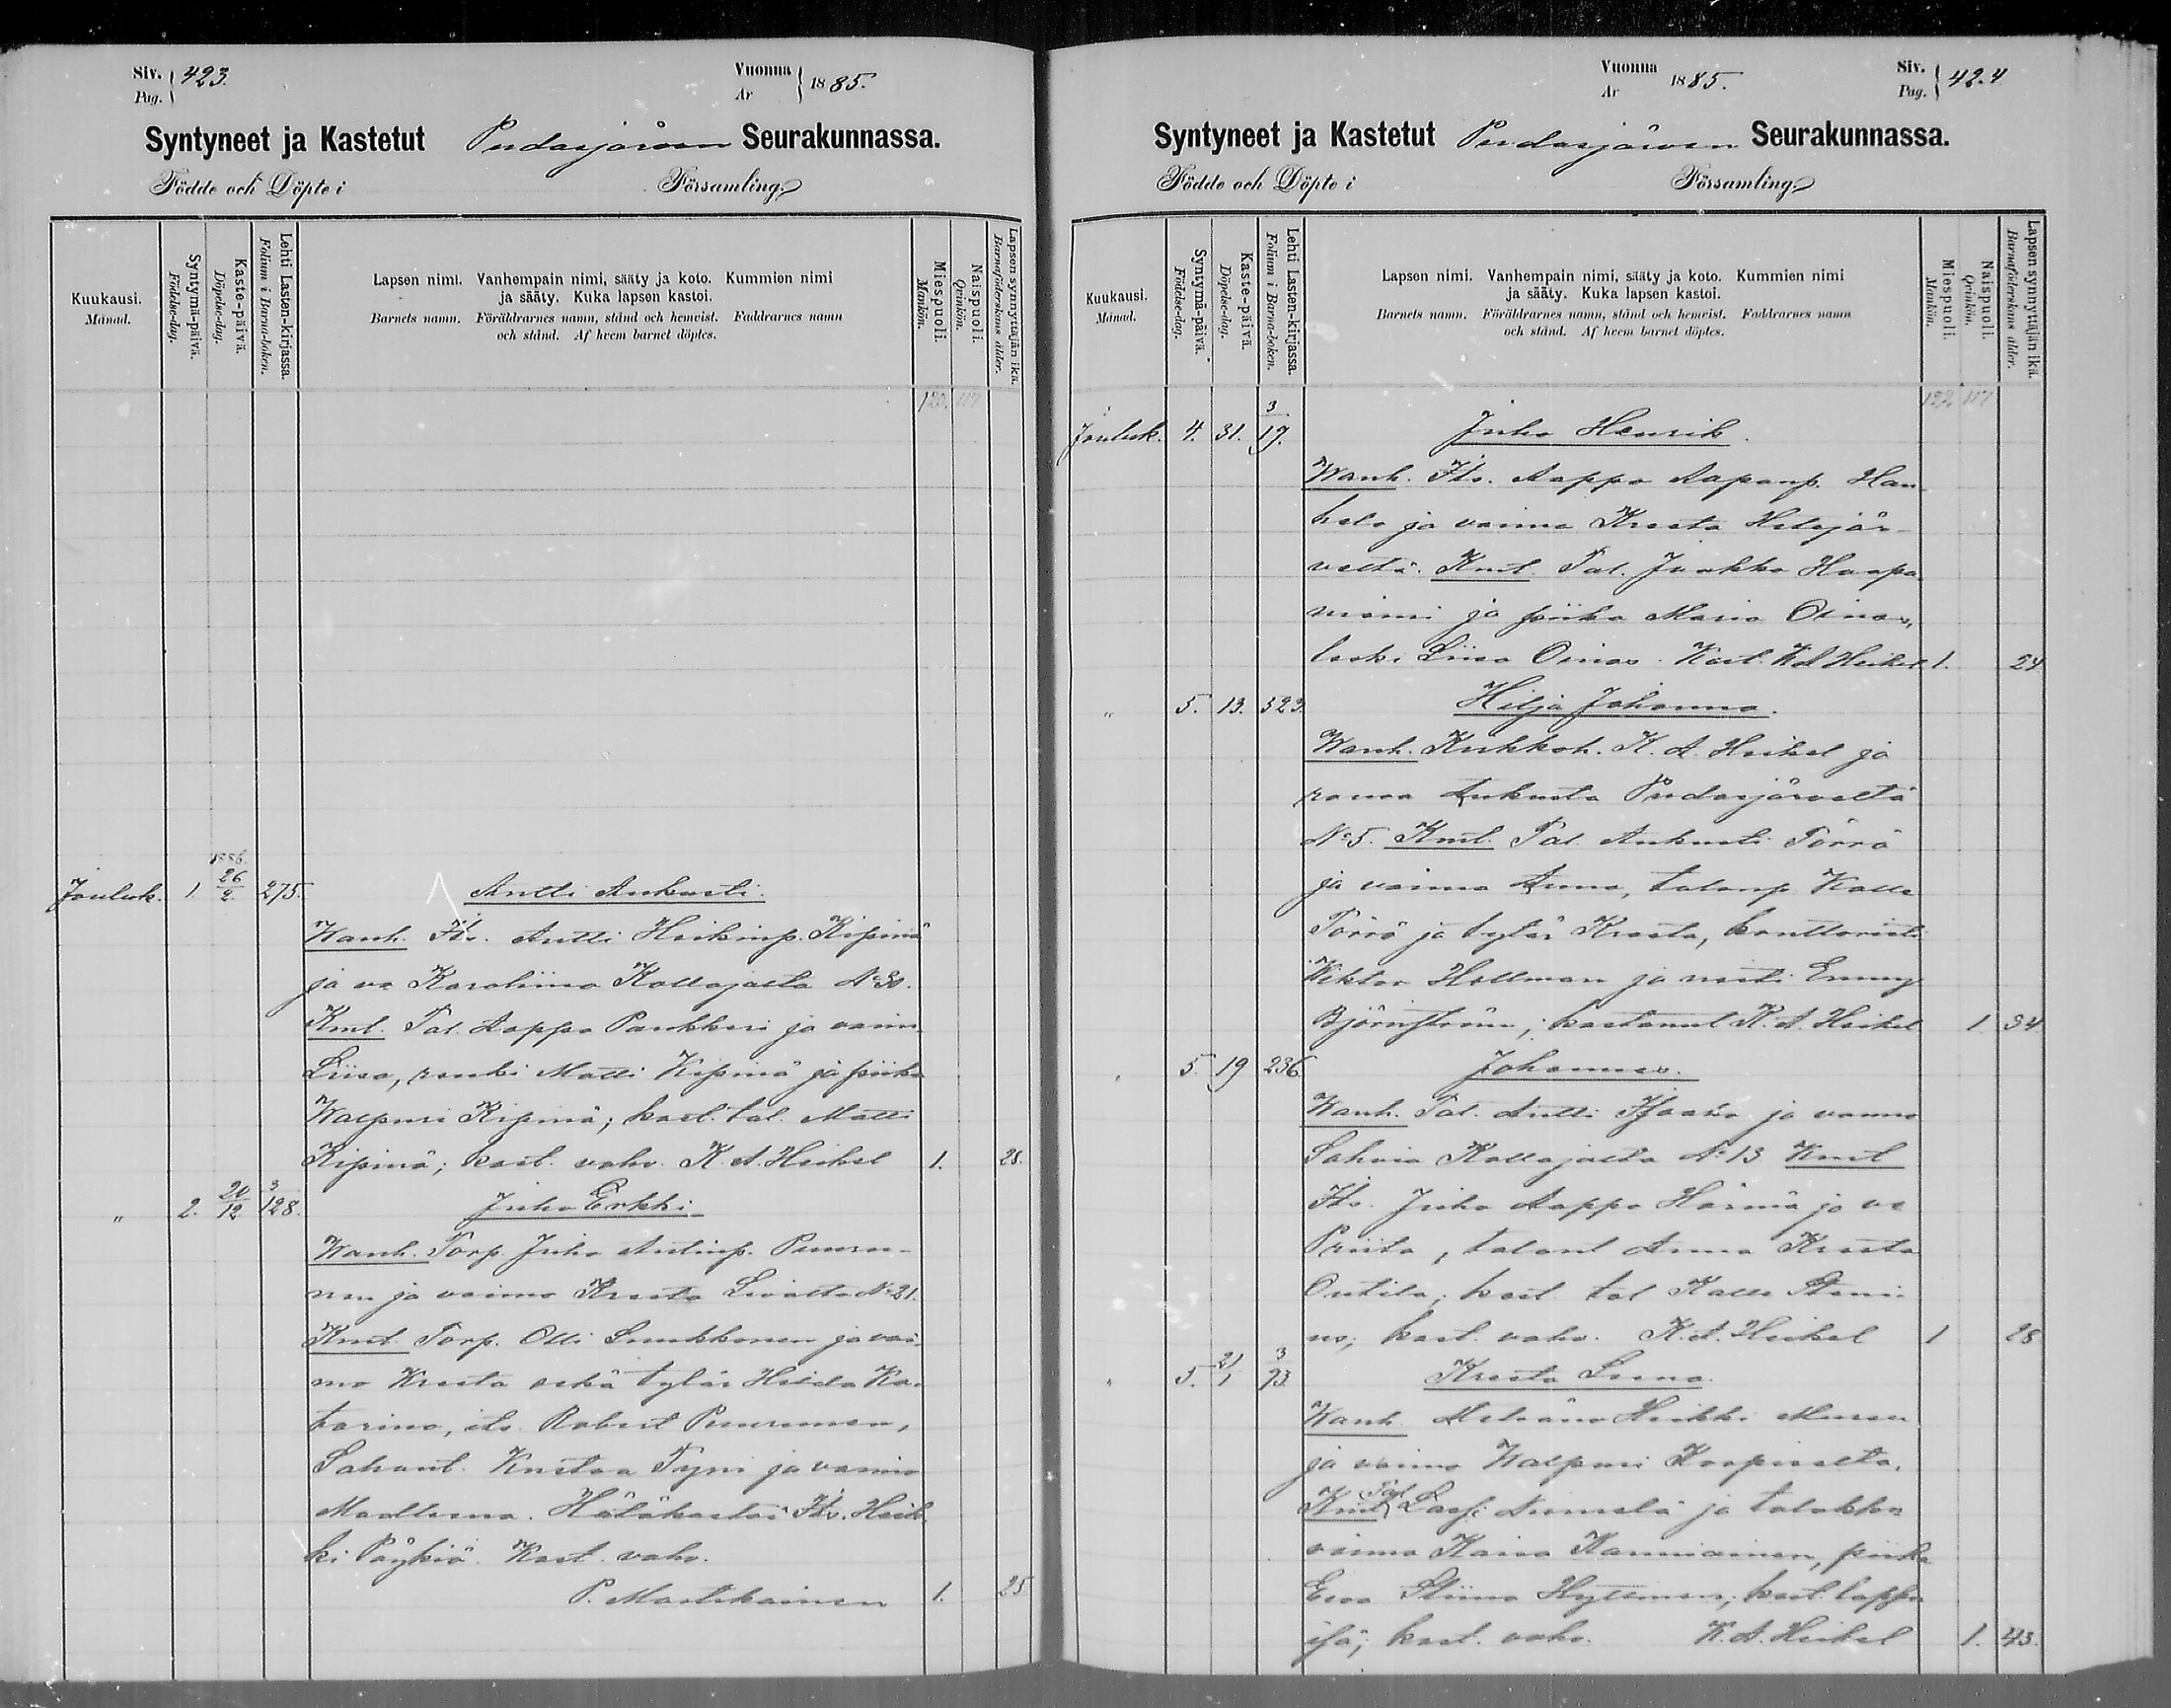 Siv. Pag. 423.
Vuonna År 1885.
Syntyneet ja Kastetut Pudasjärven Seurakunnassa.
Födde och Döpte i Församling
Kuukausi. Månad.
Syntymä-päivä. Födelse-dag.
Kaste-päivä. Döpelse-dag.
Lehti Lasten-kirjassa. Folium i Barna-boken.
Lapsen nimi. Vanhempain nimi, sääty ja koto. Kummien nimi
ja sääty. Kuka lapsen kastoi.
Barnets namn. Föräldrarnes namn, stånd och hemvist. Faddrarnes namn
och stånd. Af hvem barnet döptes.
Miespuoli. Mankön.
Naispuoli. Qvinkön.
Lapsen synnyttäjän ikä. Barnaföderskans ålder.
120. 117
1886.
Jouluk. 1 26/2. 275. Antti Aukusti.
Wanh. Its. Antti Heikinp. Kipinä
ja va Karoliina Kollajalta No 30.
Kmt. Tal. Aappo Parkkisi ja vaimo
Liisa, renki Matti Kipinä ja piika
Walpuri Kipinä; kast. tal. Matti
Kipinä; kast. vahv. K. A. Heikel 1. 28.
" 2. 20/12 3/128. Juho Erkki.
Wanh. Torp. Juho Antinp. Puuru-
nen ja vaimo Kreeta Livalta No 21.
Kmt. Torp. Olli Luukkonen ja vai-
mo Kreeta sekä tytär Hilda Ka-
tarina, its. Robert Puurunen,
Lahant. Kustaa Tyni ja vaimo
Madleena. Hätäkastoi Its. Heik-
ki Päykiö. Kast. vahv.
P. Martikainen 1. 25
Vuonna År 1885.
Siv. Pag. 424
Syntyneet ja Kastetut Pudasjärven Seurakunnassa.
Födde och Döpte i Församling
Kuukausi. Månad.
Syntymä-päivä. Födelse-dag.
Kaste-päivä. Döpelse-dag.
Lehti Lasten-kirjassa. Folium i Barna-boken.
Lapsen nimi. Vanhempain nimi, sääty ja koto. Kummien nimi
ja sääty. Kuka lapsen kastoi.
Barnets namn. Föräldrarnes namn, stånd och hemvist. Faddrarnes namn
och stånd. Af hvem barnet döptes.
Miespuoli. Mankön.
Naispuoli. Qvinkön.
Lapsen synnyttäjän ikä. Barnaföderskans ålder.
122 117
Jouluk. 4. 31. 3/17. Juho Henrik.
Wanh. Its. Aappo Aaponp. Han-
hela ja vaimo Kreeta Hetejär-
veltä. Kmt. Tal. Jaakko Haapa
niemi ja piika Maria Oinas,
leski Liisa Oinas. Kast. K A Heikel 1. 24
" 5. 13. 523. Hilja Johanna.
Wanh. Kirkkoh. K. A. Heikel ja
rouva Aukusta Pudasjärveltä
No 5. Kmt. Tal. Aukusti Törrö
ja vaimo Anna, talonp Kalle
Törrö ja tytär Kreeta, konttoristi
Wiktor Hollman ja neiti Emmy
Björnström; kastanut K. A. Heikel 1 34
" 5. 19 236. Johannes.
Wanh. Tal. Antti ja vaimo
Kollajalta No 13 Kmt
Its. Juho Aappo Härmä ja va
Priita, talont Anna Kreeta
Outila; kast. tal Kalle
no; kast. vahv. K. A. Heikel 1 28
" 5. 21/1 3/93. Kreeta Leena.
Wanh. Heikki
ja vaimo Walpuri
Kmt Tal Lassi Niemelä ja talokkaan
vaimo Kaisa Kanniainen, piika
Eeva Stiina Hyttinen; kast. lapsen
isä; kast. vahv. K. A. Heikel 1. 43.